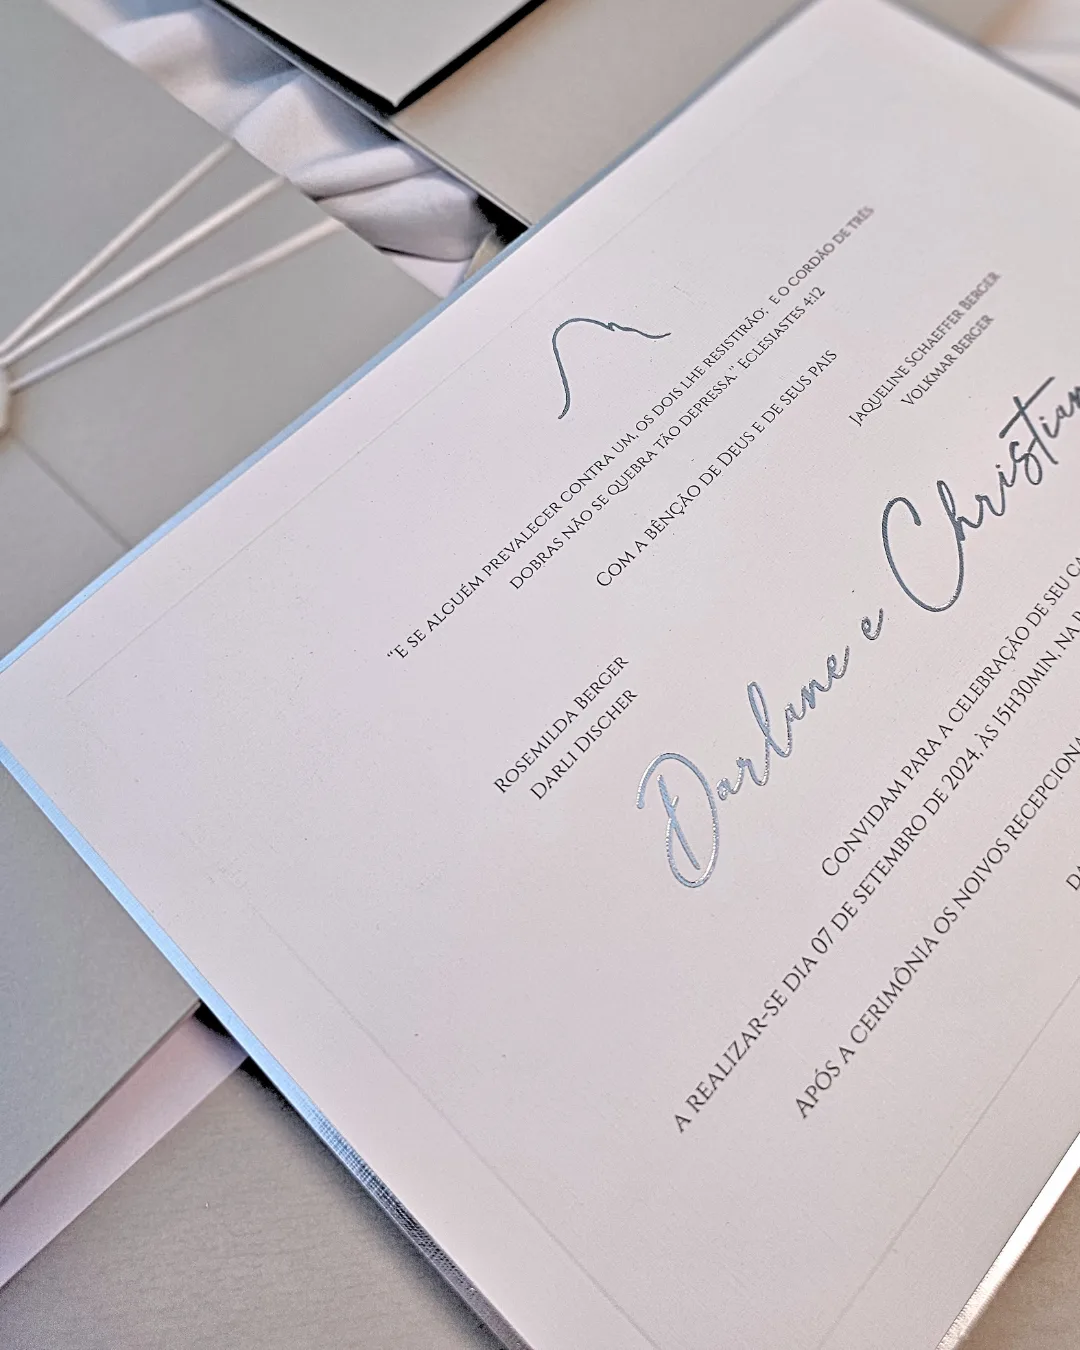 “E SE ALGUÉM PREVALECER CONTRA UM, OS DOIS LHE RESISTIRÃO; E O CORDÃO DE TRÊS
DOBRAS NÃO SE QUEBRA TÃO DEPRESSA.” ECLESIASTES 4:12
COM A BÊNÇÃO DE DEUS E DE SEUS PAIS
ROSEMILDA BERGER
DARLI DISCHER
JAQUELINE SCHAEFFER BERGER
VOLKMAR BERGER
Darlane e Christian
CONVIDAM PARA A CELEBRAÇÃO DE SEU
A REALIZAR-SE DIA 07 DE SETEMBRO DE 2024, ÀS 15H30MIN, NA
APÓS A CERIMÔNIA OS NOIVOS